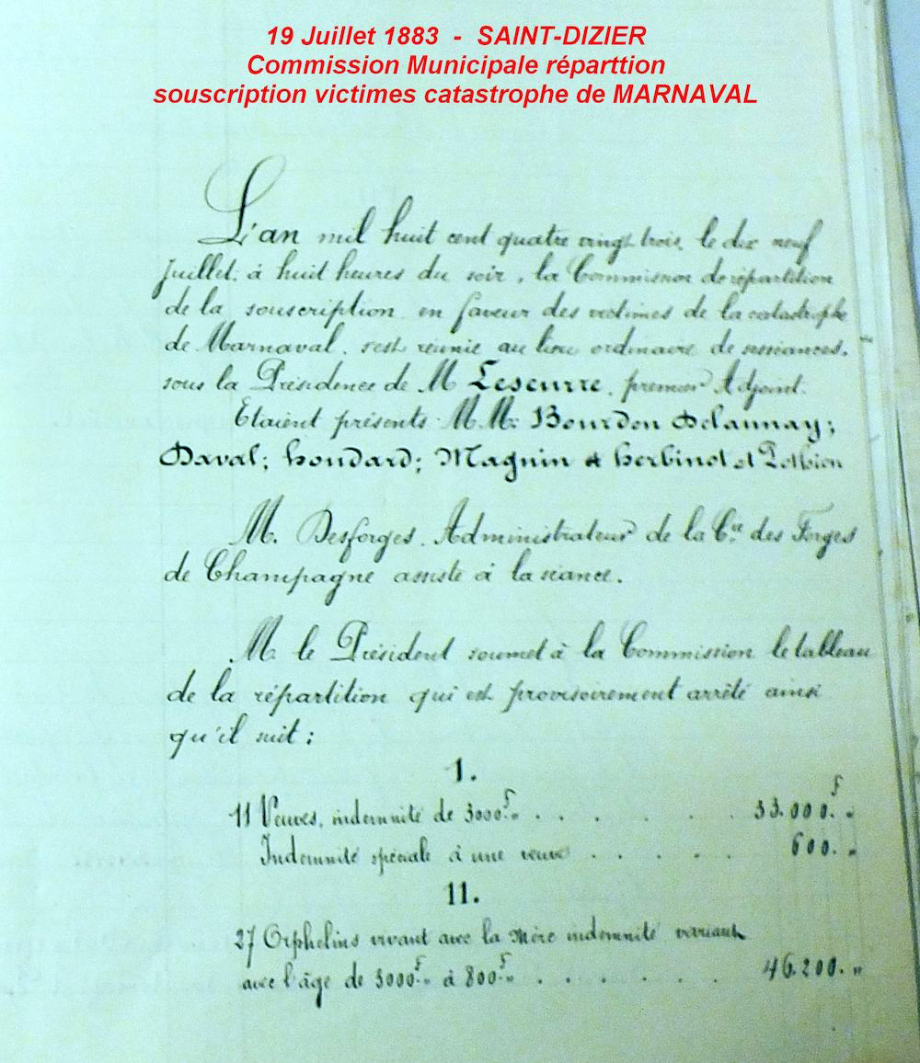 19 Juillet 1883 - SAINT-DIZIER
Commission Municipale réparttion
souscription victimes catastrophe de MARNAVAL
L'an mil huit cent quatre vingt trois, le dix neuf
Juillet, à huit heures du soir, la Commission de répartition
de la souscription en faveur des victimes de la catastrophe
de Marnaval, s'est réunie au lieu ordinaire de sessiances,
sous la Présidence de M Leseurre, premier Adjoint.
Etaient présents M.M. Bourdon Delaunay;
Daval; houdard; Magnin & herbinot et Pothion
M. Desforges, Administrateur de la Cie des Forges
de Champagne assiste à la séance.
M. le Président soumet à la Commission le tableau
de la répartition qui est provisoirement arrêté ainsi
qu'il suit :
I.
11 Veuves, indemnité de 3000F " . . . . . . 33.000.F "
Indemnité spéciale à une veuve . . . . . 600. "
II.
27 Orphelins vivant avec la mère indemnité variant
avec l'âge de 3000F " à 800F " . . . . . . 46.200. "